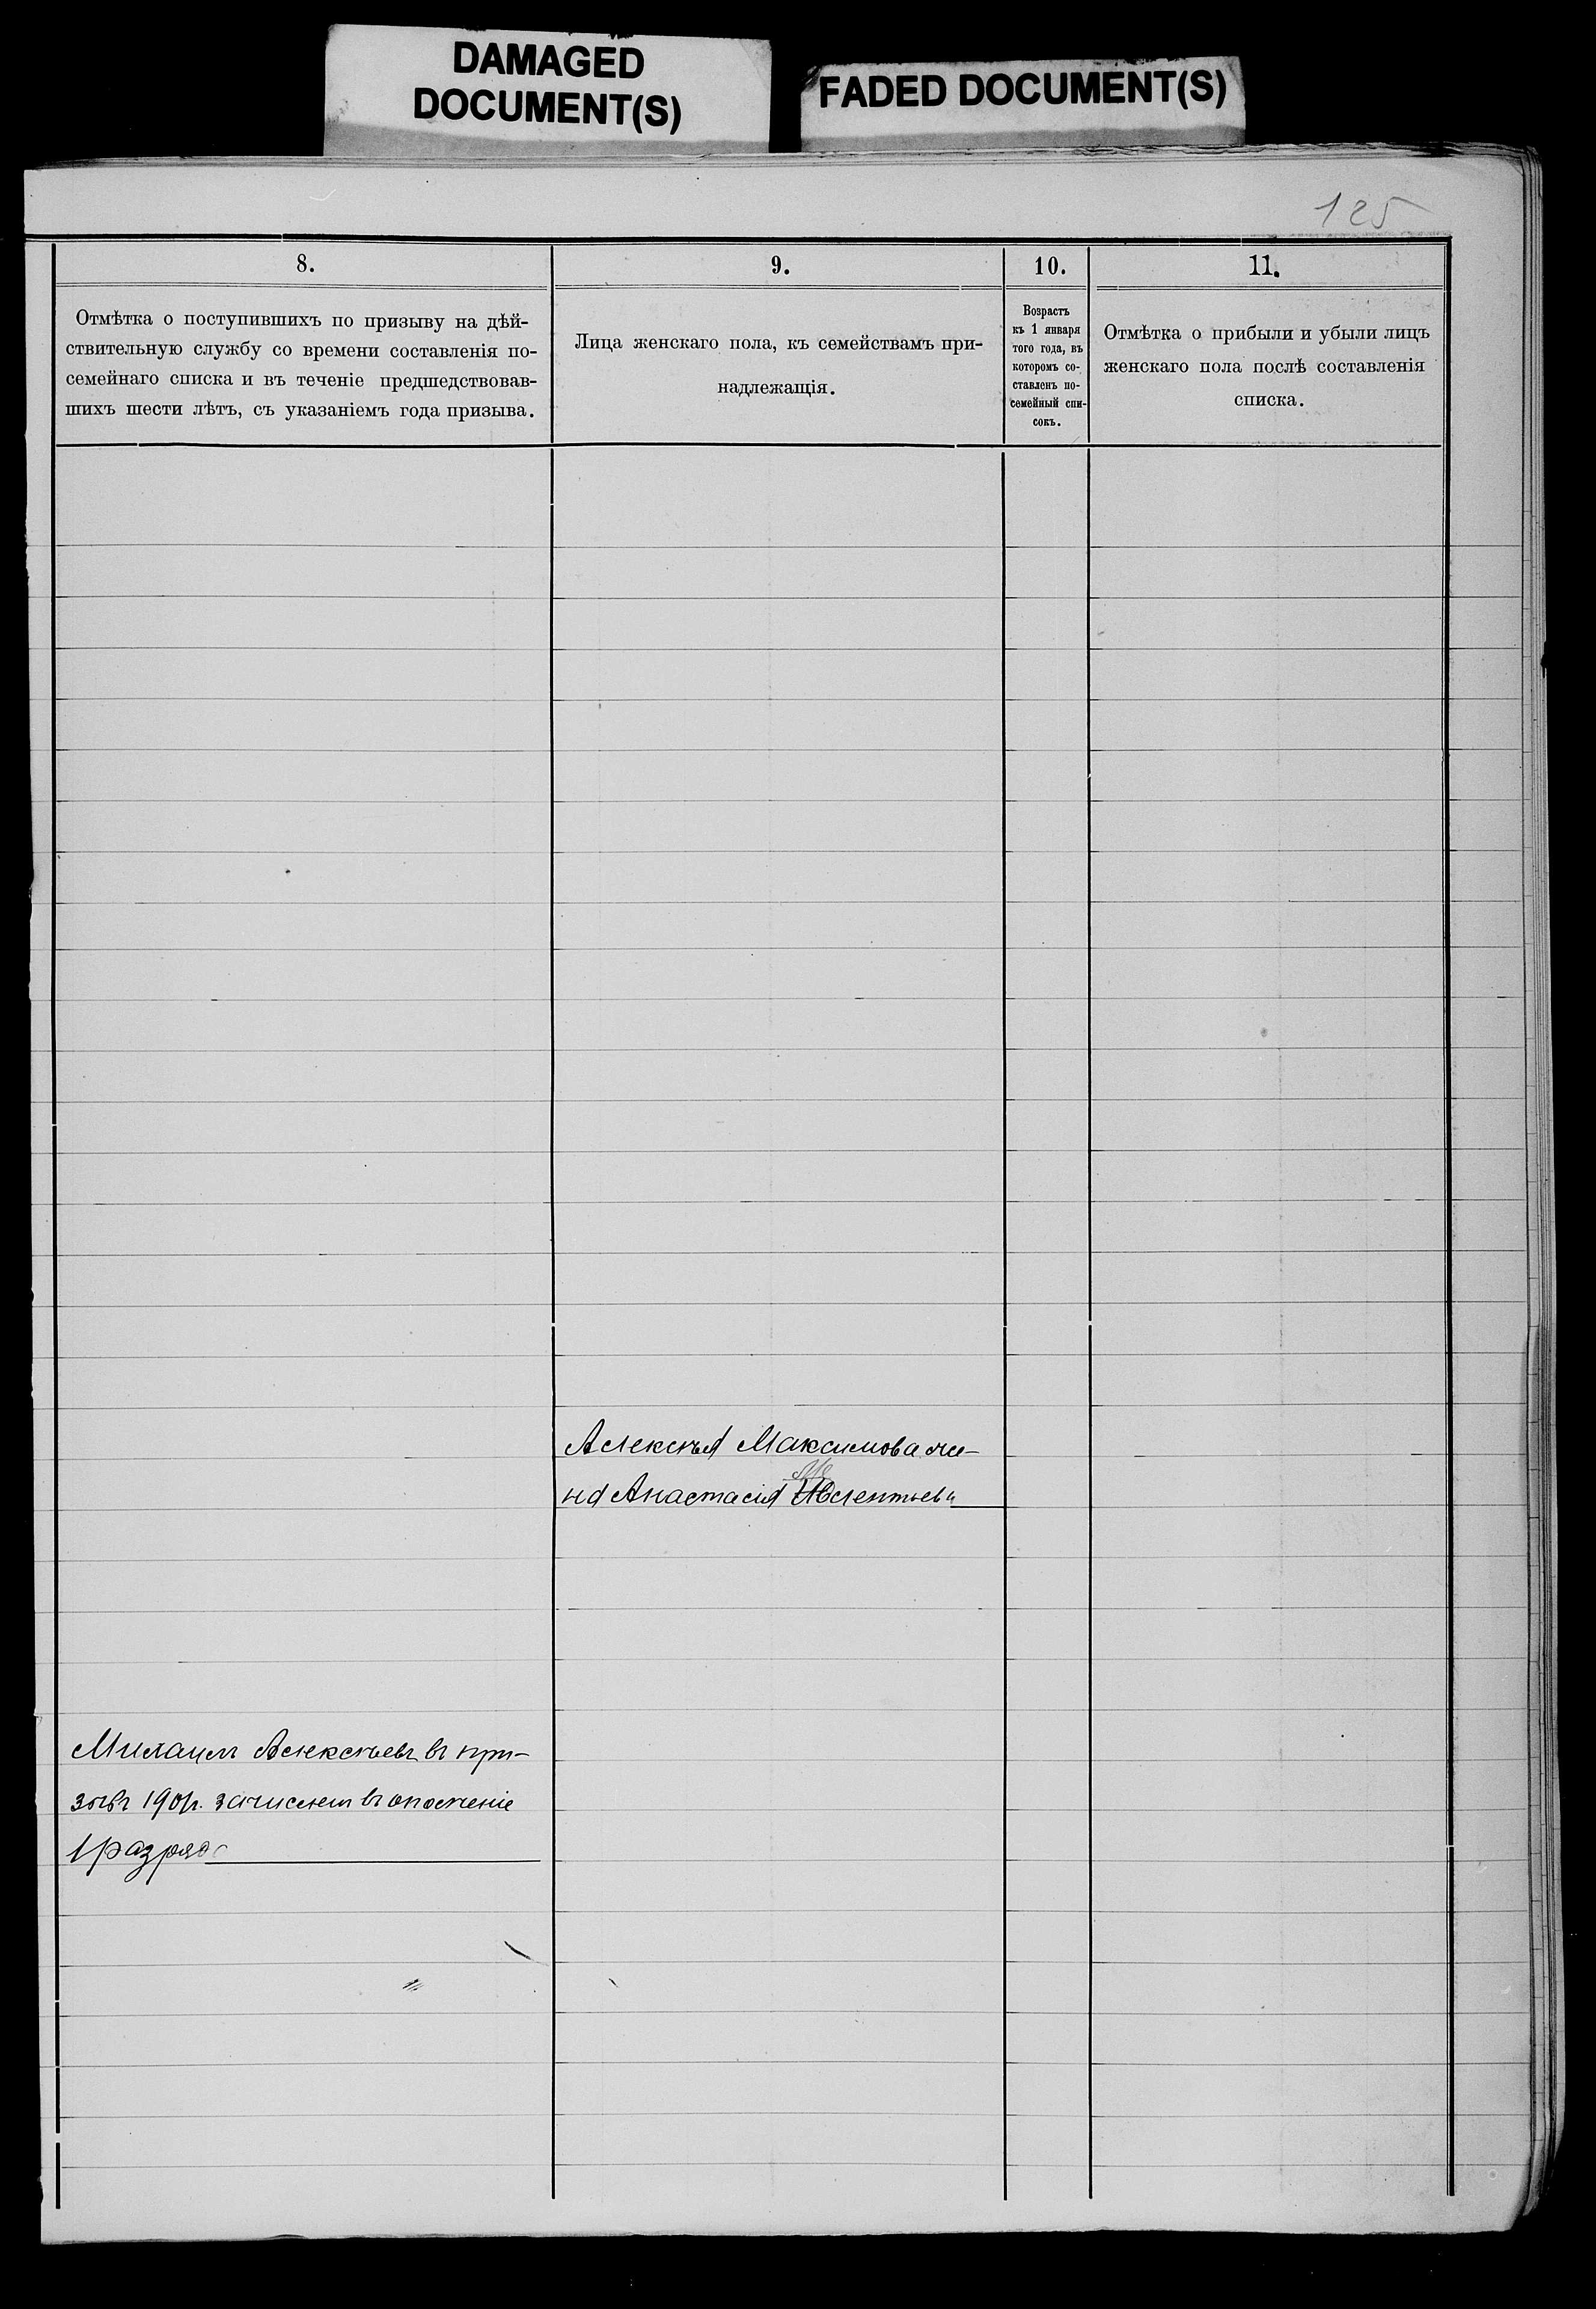 DAMAGED
DOCUMENT(S)
FADED DOCUMENT(S)
125
8.
9.
10.
11.
Отмѣтка о поступившихъ по призыву на дѣй-
ствительную службу со времени составленія по-
семейнаго списка и въ теченіе предшедствовав-
шихъ шести лѣтъ, съ указаніемъ года призыва.
Лица женскаго пола, къ семействамъ при-
надлежащія.
Возрастъ
къ 1 января
того года, въ
которомъ со-
ставленъ по-
семейный спи-
сокъ.
Отмѣтка о прибыли и убыли лицъ
женскаго пола послѣ составленія
списка.
Алексѣя Максимова же-
на Анастасія
Михаилъ Алексѣевъ въ при-
зывъ 1901г. зачисленъ въ ополченіе
1 разряда